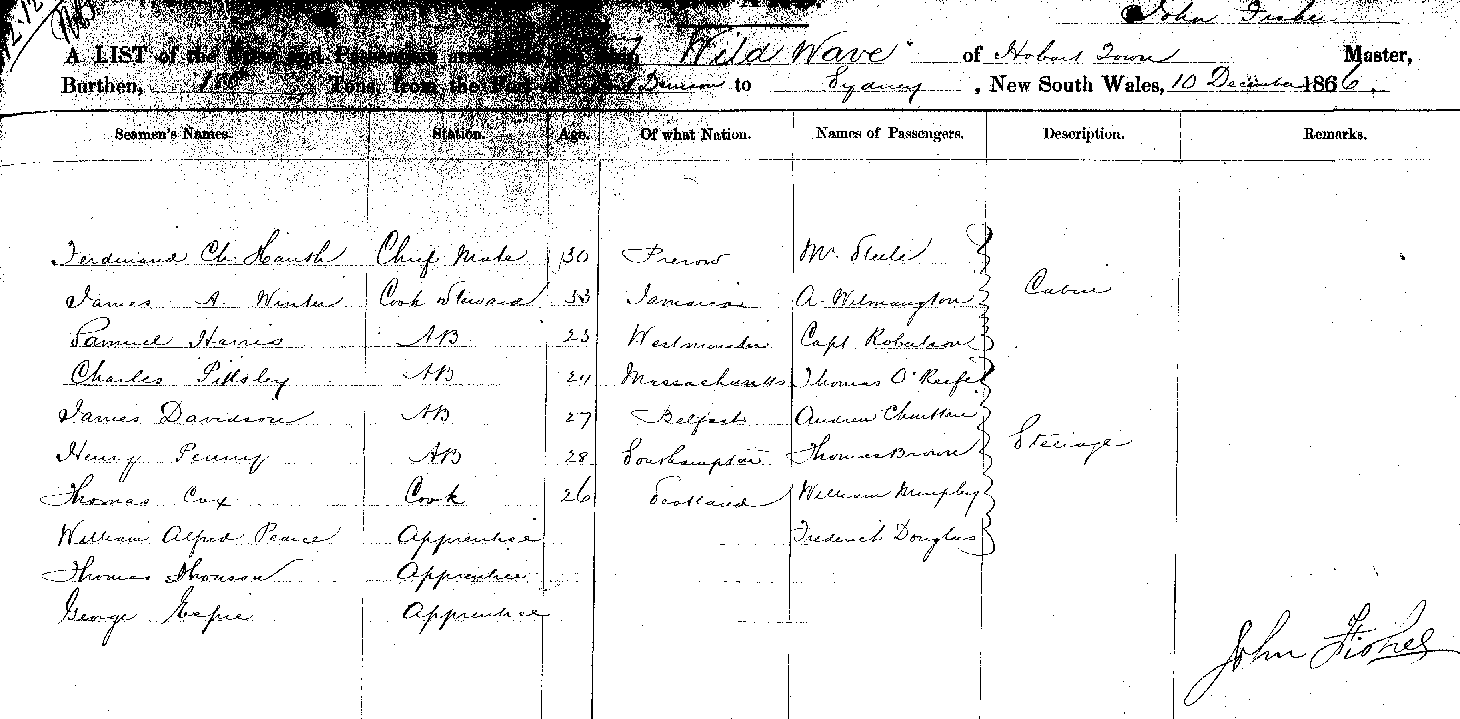 John Fisher
A LIST of the Crew and Passengers "Wild Wave" of Hobart Town Master,
Burthen, Tons, from the Port of Port Denison to Sydney, New South Wales, 10 December 1866.
Seamen's Names. Station. Age. Of what Nation. Names of Passengers. Description. Remarks.
Ferdinand Ch. Chief Mate 30 Prerow Mr. Steele
James A. Winter Cook Steward 33 Jamaica A. Cabin
Samuel Harris AB 23 Westminster Capt Robertson
Charles Pittsley AB Massachusetts Thomas O'Keefe
James Davidson AB 27 Belfast Andrew
Henry Penny AB 28 Southampton Thomas Brown Steerage
Thomas Cox Cook 26 Scotland William Murphy
William Alfred Pearce Apprentice Frederick Douglass
Thomas Apprentice
George Espie Apprentice
John Fisher